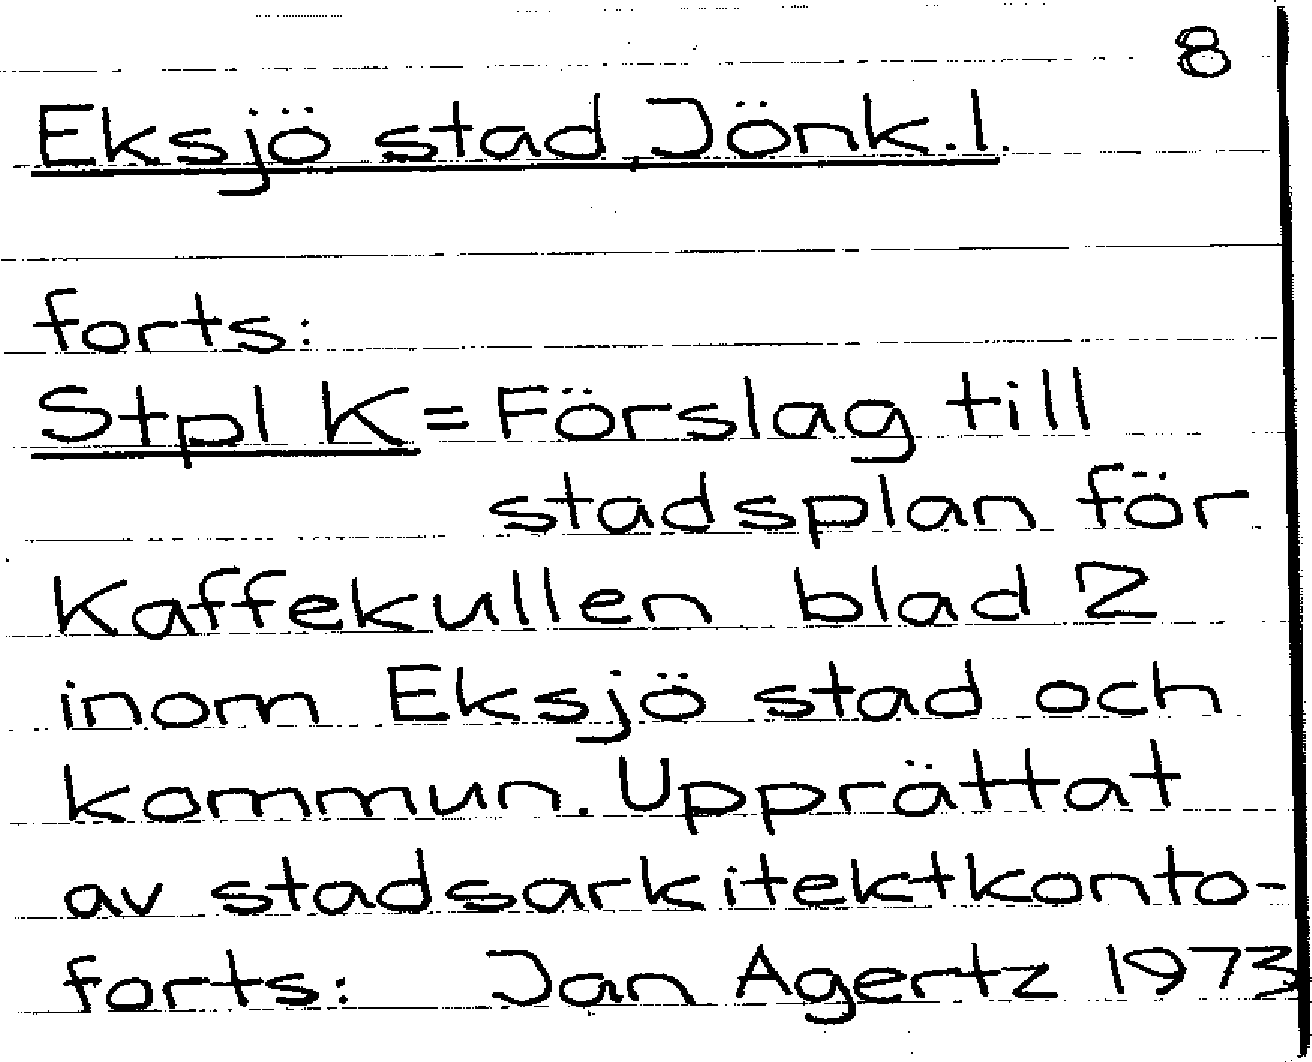 8
Eksjö stad Jönk.l.
forts:
Stpl K = Förslag till
stadsplan för
Kaffekullen blad 2
inom Eksjö stad och
kommun. Upprättat
av stadsarkitektkonto-
forts: Jan Agertz 1973